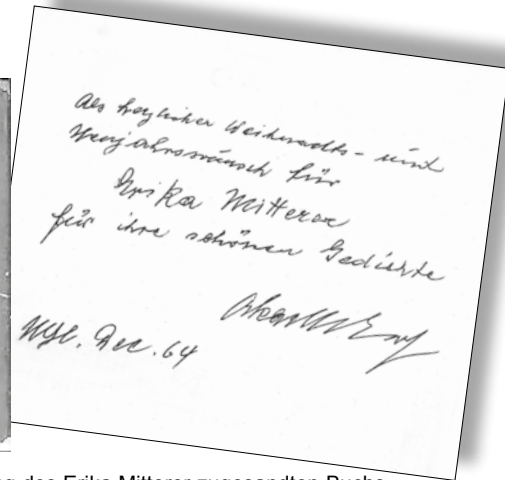 Als herzlicher Weihnachts- und
Neujahrswunsch für
Erika Mitterer
für ihre schönen Gedichte
Dec. 64
des Erika Mitterer zugesandten Buchs